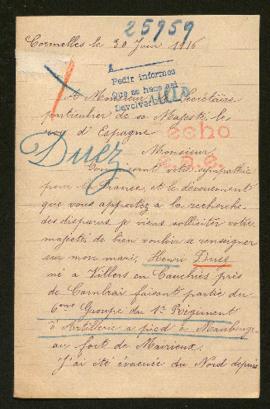 25959
Cormelles le 30 Juin 1916
A
Pedir informes
Que se hace así
Devolver
A Monsieur le Secrétaire
particulier de sa Majesté le
roy d'Espagne
echo
Duez
Monsieur
Connaissant votre sympathie
pour la France, et le dévouement
que vous apportez à la recherche
des disparus je viens solliciter votre
majesté de bien vouloir me renseigner
sur mon mari, Henri Duez
né à Villers en Cauchies près
de Cambrai faisant partie du
6eme Groupe du 1r Régiment
d'Artillerie à pied à Maubeuge
au fort de Mairieux.
J'ai été évacuée du Nord depuis